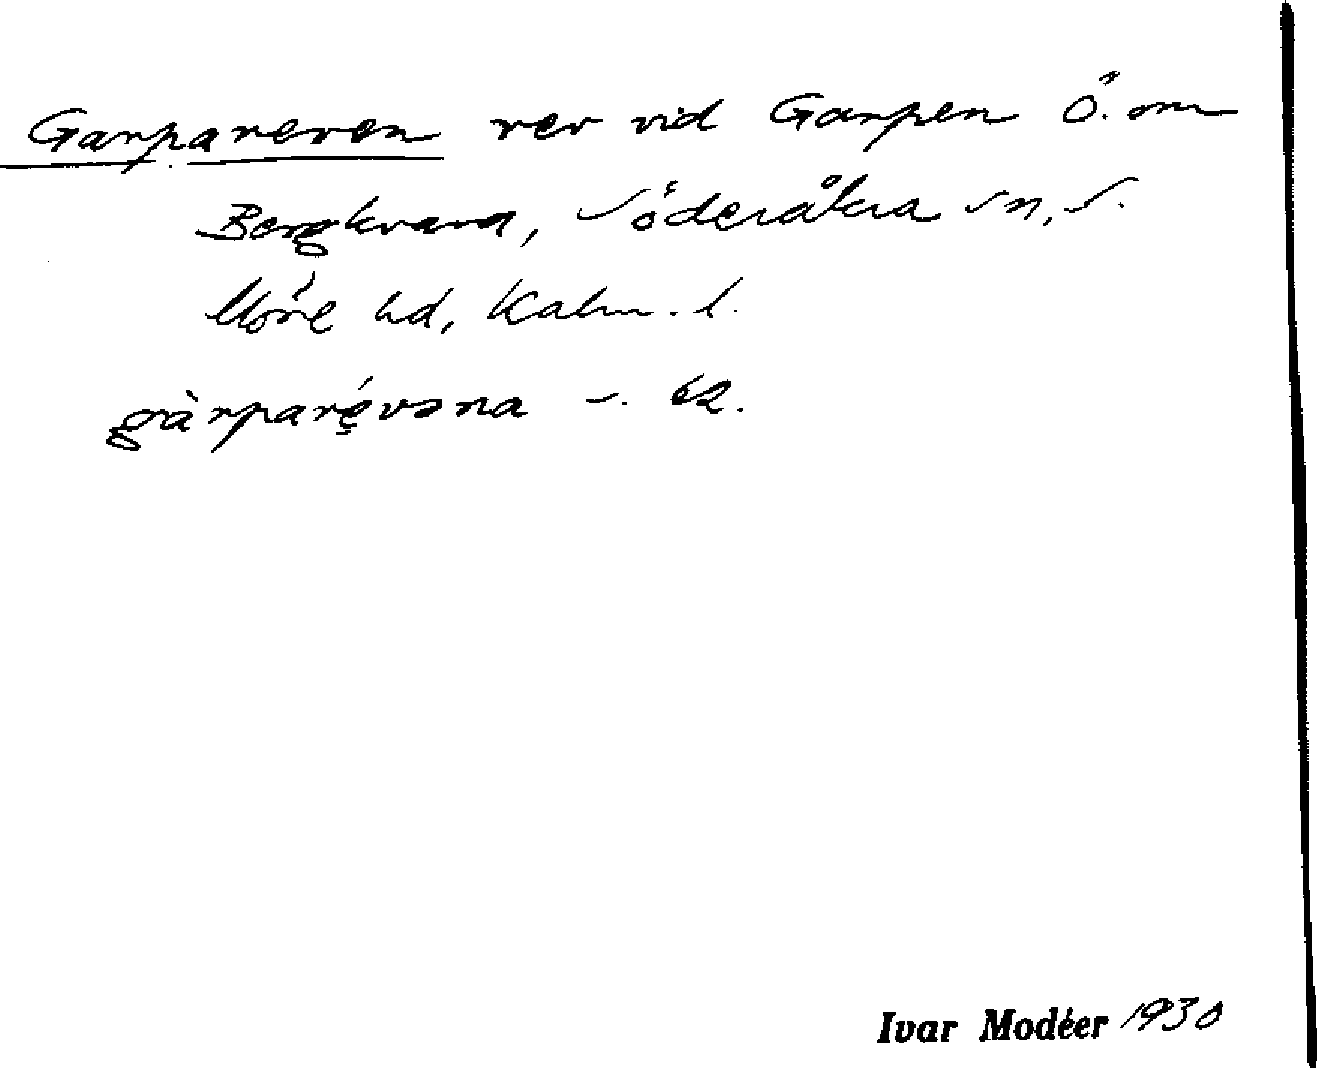 Garpareven rev vid Garpen Ö. om
Bergkvara, Söderåkra sn, S.
Möre hd, Kalm. l.
gàrparé̩vəna
Ivar Modéer 1930